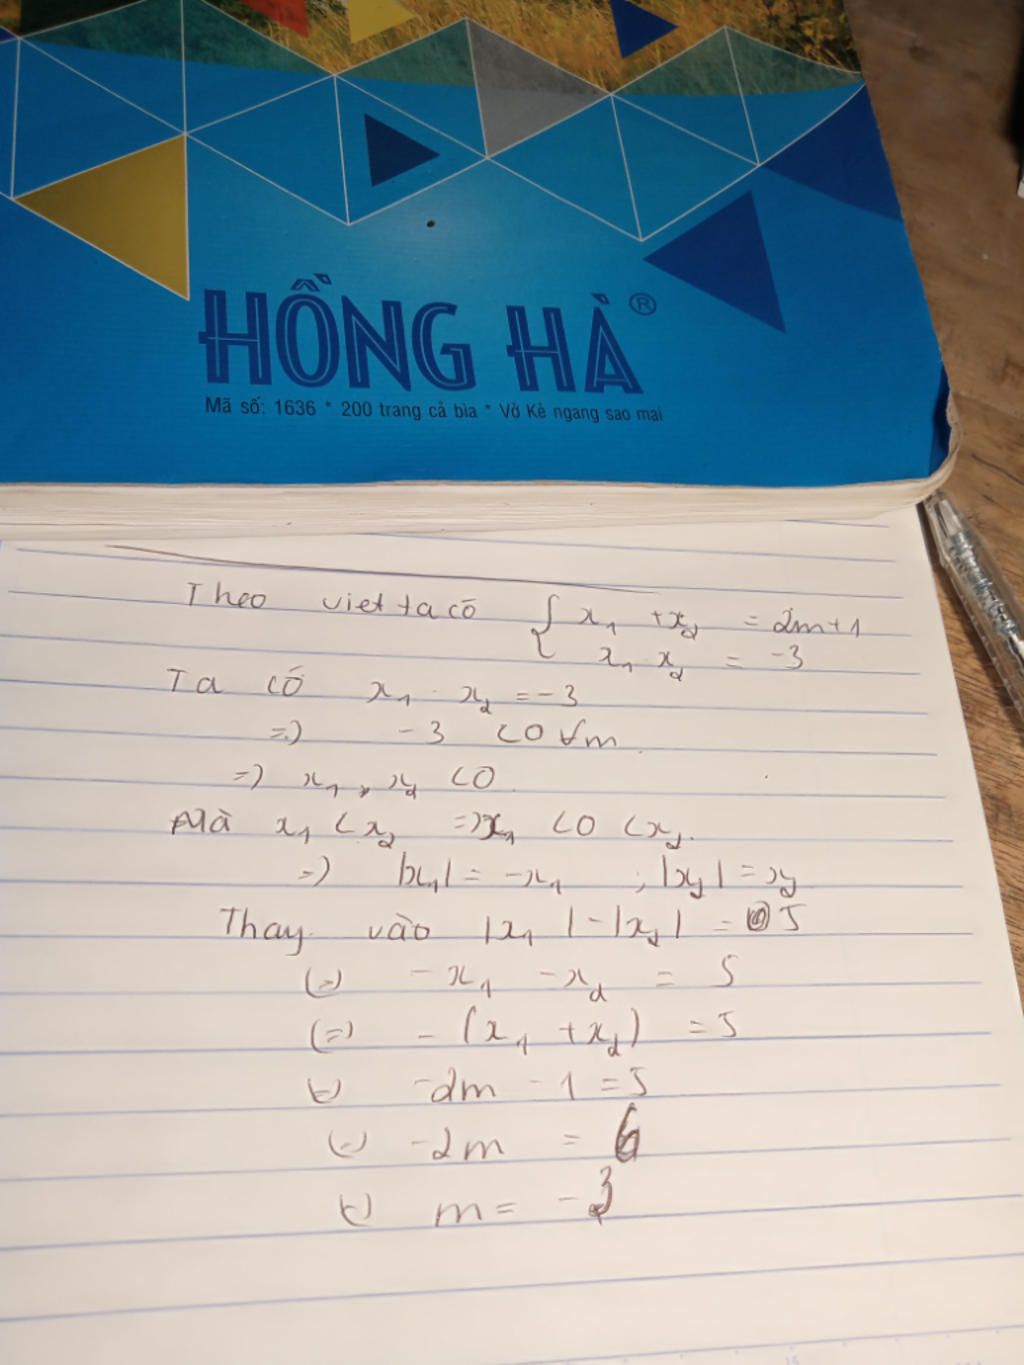 HỒNG HÀ ®
Mã số: 1636 * 200 trang cả bìa * Vở Kẻ ngang sao mai
Theo viet ta có { x₁ + x₂ = 2m+1
x₁ x₂ = -3
Ta có x₁ . x₂ = -3
=) -3 <0 ∀m.
=) x₁ , x₂ <0.
Mà x₁ < x₂ =) x₁ <0 <x₂.
=) |x₁| = -x₁ ; |x₂| = x₂
Thay vào |x₁| - |x₂| = 5
(=) -x₁ -x₂ = 5
(=) - (x₁ + x₂) = 5
(=) -2m - 1 = 5
(=) -2m = 6
(=) m = -3